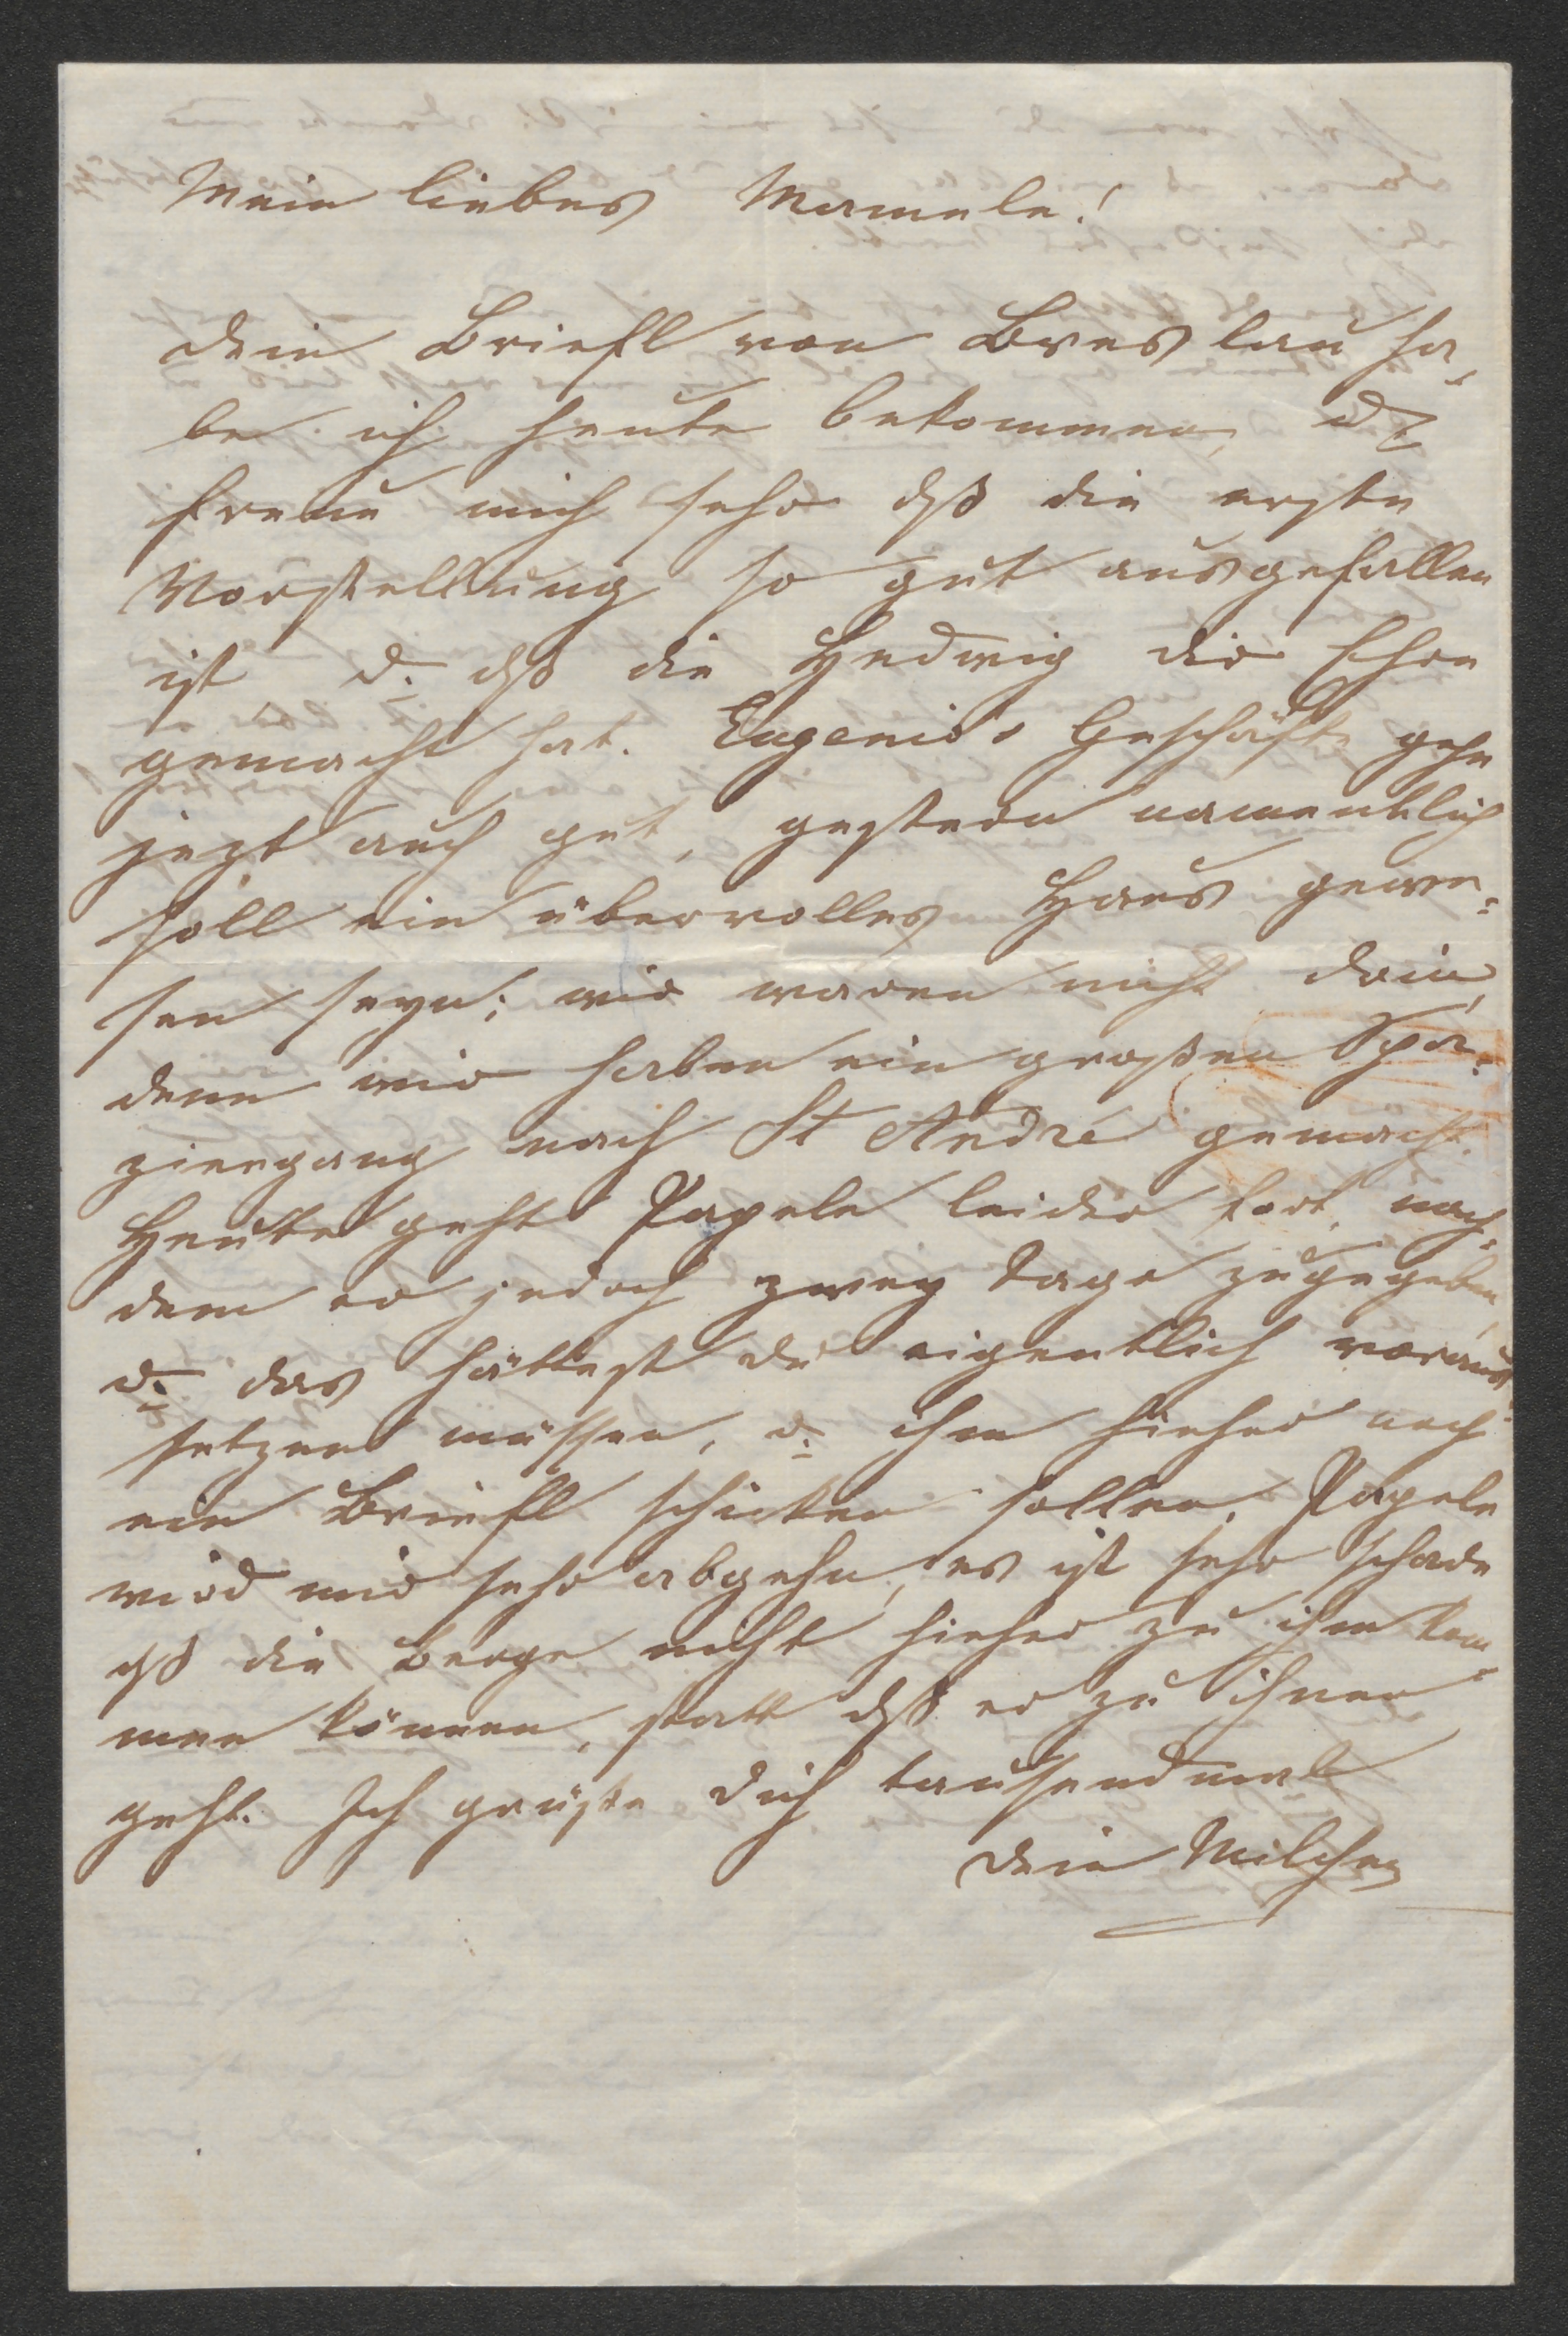 Mein liebes Mamele!
Dein Briefl von Breslau ha-
be ich heute bekommen, u
freue mich sehr dß die erste
Vorstellung so gut ausgefallen
ist u. dß die Hedwig dir Ehre
gemacht hat. Eugenio's Geschäfte gehn
jezt auch gut, gestern namentlich
soll ein übervolles Haus gewe=
sen seyn; wir waren nicht drin,
denn wir haben ein großen Spa=
ziergang nach St André gemacht.
Heute geht Papele leider fort, nach=
dem er jedoch zwey Tage zugegeben,
u. das hättest du eigentlich voraus
setzen müssen, u. ihm hieher noch
ein Briefl schicken sollen. Papele
wird mir sehr abgehn, es ist sehr schade
dß die Berge nicht hieher zu ihm kom=
men können, statt dß er zu ihnen
geht. Ich grüße dich tausendmal
Dein Milchen